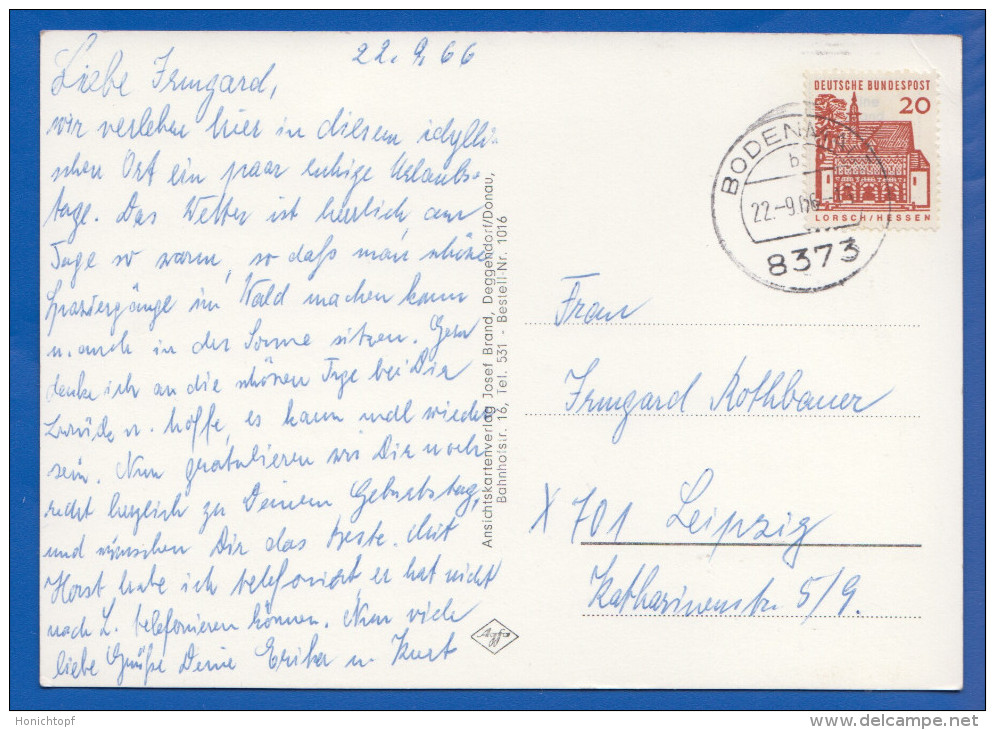 22. 9. 66
Liebe Irmgard,
wir verleben hier in diesem idylli-
schen Ort ein paar ruhige Urlaubs-
tage. Das Wetter ist herrlich, am
Tage so warm, so daß man schöne
Spaziergänge im Wald machen kann
u. auch in der Sonne sitzen. Gern
denke ich an die schönen Tage bei Dir
zurück u. hoffe, es kann mal wieder
sein. Nun gratulieren wir Dir noch
recht herzlich zu Deinem Geburtstag,
und wünschen Dir das Beste. Mit
Horst habe ich telefoniert, er hat nicht
nach L. telefonieren können. Nun viele
liebe Grüße Deine Erika u. Kurt
Ansichtskartenverlag Josef Brand, Deggendorf/Donau,
Bahnhofstr. 16, Tel. 531 - Bestell-Nr. 1016
Agfa
DEUTSCHE BUNDESPOST
20
LORSCH/HESSEN
22.-9.66
8373
Frau
Irmgard Rothbauer
X 701 Leipzig
Katharinenstr. 5/9.
Honichtopf
www.delcampe.net